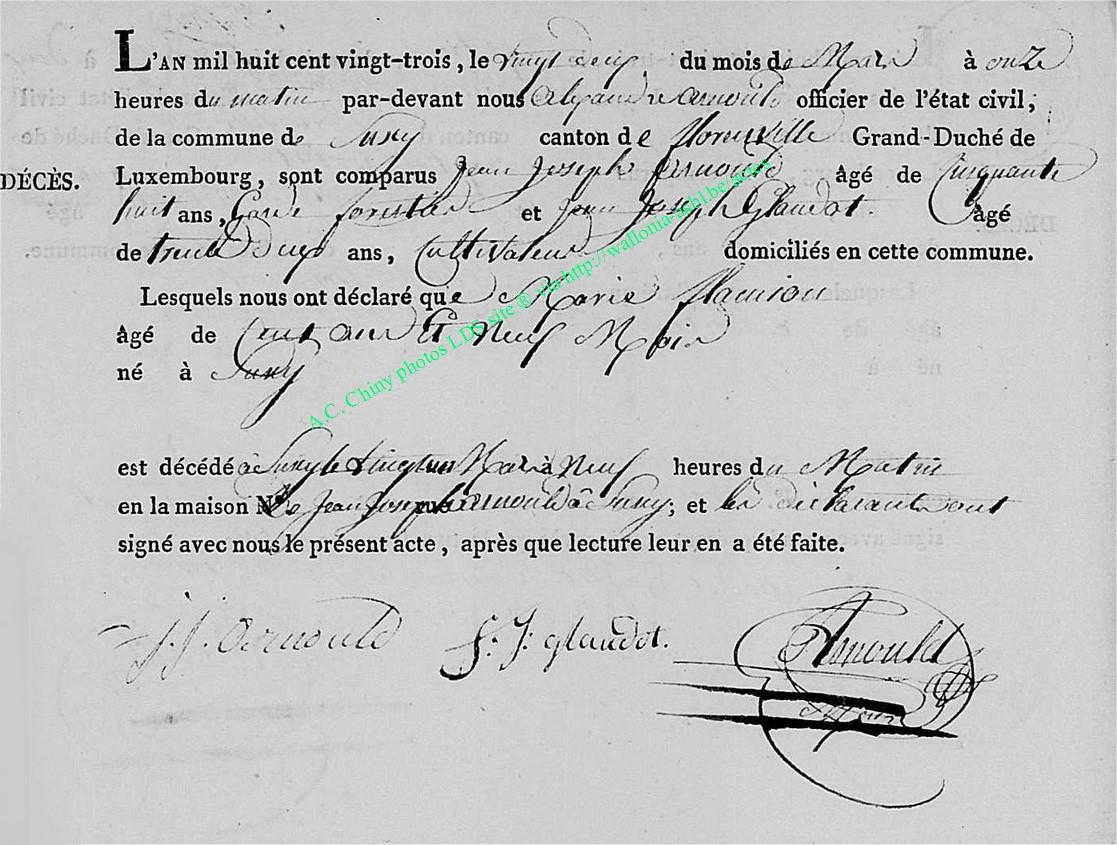 L'AN mil huit cent vingt-trois, le vingt deux du mois de Mars à onze
heures du matin par-devant nous alexandre arnould officier de l'état civil,
de la commune de Suxy canton de florenville Grand-Duché de
DÉCÈS. Luxembourg, sont comparus Jean Joseph arnould âgé de Cinquante
huit ans, Garde forestier et Jean Joseph Glaudot. âgé
de trente Deux ans, Cultivateur domiciliés en cette commune.
Lesquels nous ont déclaré que Marie
âgé de ans Et Neuf Mois
né à Suxy
est décédé à Suxy le vingt un Mars à Neuf heures du Matin
en la maison de Jean Joseph arnould à Suxy; et les déclarants ont
signé avec nous le présent acte, après que lecture leur en a été faite.
J. J. arnould J. J. glaudot. Arnould
A.C. Chiny photos LDS site ® via http://wallonia-asbl.be/actes